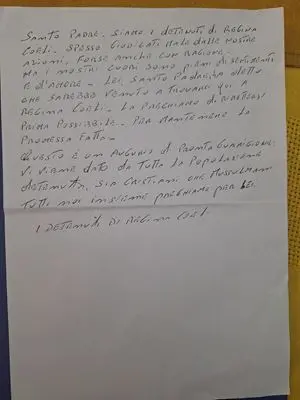 SANTO PADRE. SIAMO I DETENUTI DI REGINA
COELI. SPESSO GIUDICATI MALE DALLE NOSTRE
AZIONI, FORSE ANCHE CON RAGIONE.
MA I NOSTRI CUORI SONO PIENI DI SENTIMENTI
E D'AMORE - LEI SANTO PADRE HA DETTO
CHE SAREBBE VENUTO A TROVARCI QUI A
REGINA COELI. LA PREGHIAMO DI RIMETTERSI
PRIMA POSSIBILE. PER MANTENERE LA
PROMESSA FATTA.
QUESTO È UN AUGURIO DI PRONTA GUARIGIONE.
VI VIENE DATO DA TUTTA LA POPOLAZIONE
DETENUTA, SIA CRISTIANI CHE MUSSULMANI
TUTTI NOI INSIEME PREGHIAMO PER LEI.
I DETENUTI DI REGINA COELI